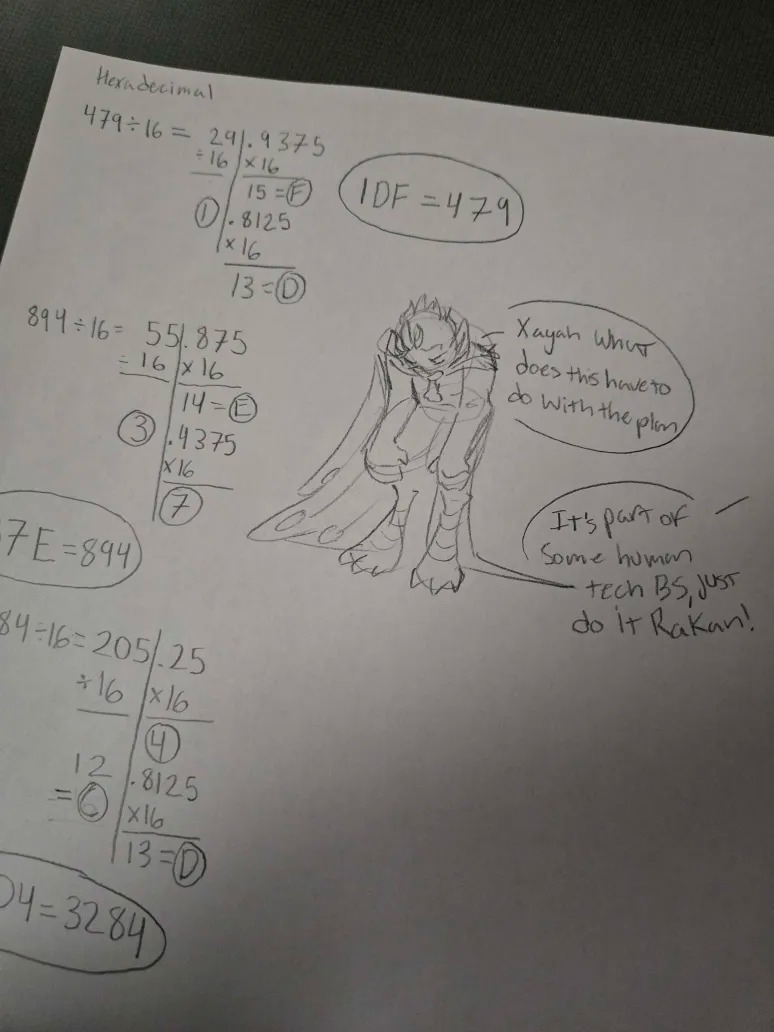 Hexadecimal
479÷16= 29.9375
÷16 ×16
15=F
1 .8125
×16
13=D
1DF=479
894÷16= 55.875
÷16 ×16
14=E
3 .4375
×16
7
7E=894
Xayah What
does this have to
do with the plan
It's part of
some human
tech BS, just
do it Rakan!
84÷16=205.25
÷16 ×16
4
12 .8125
= ×16
13=D
D4=3284